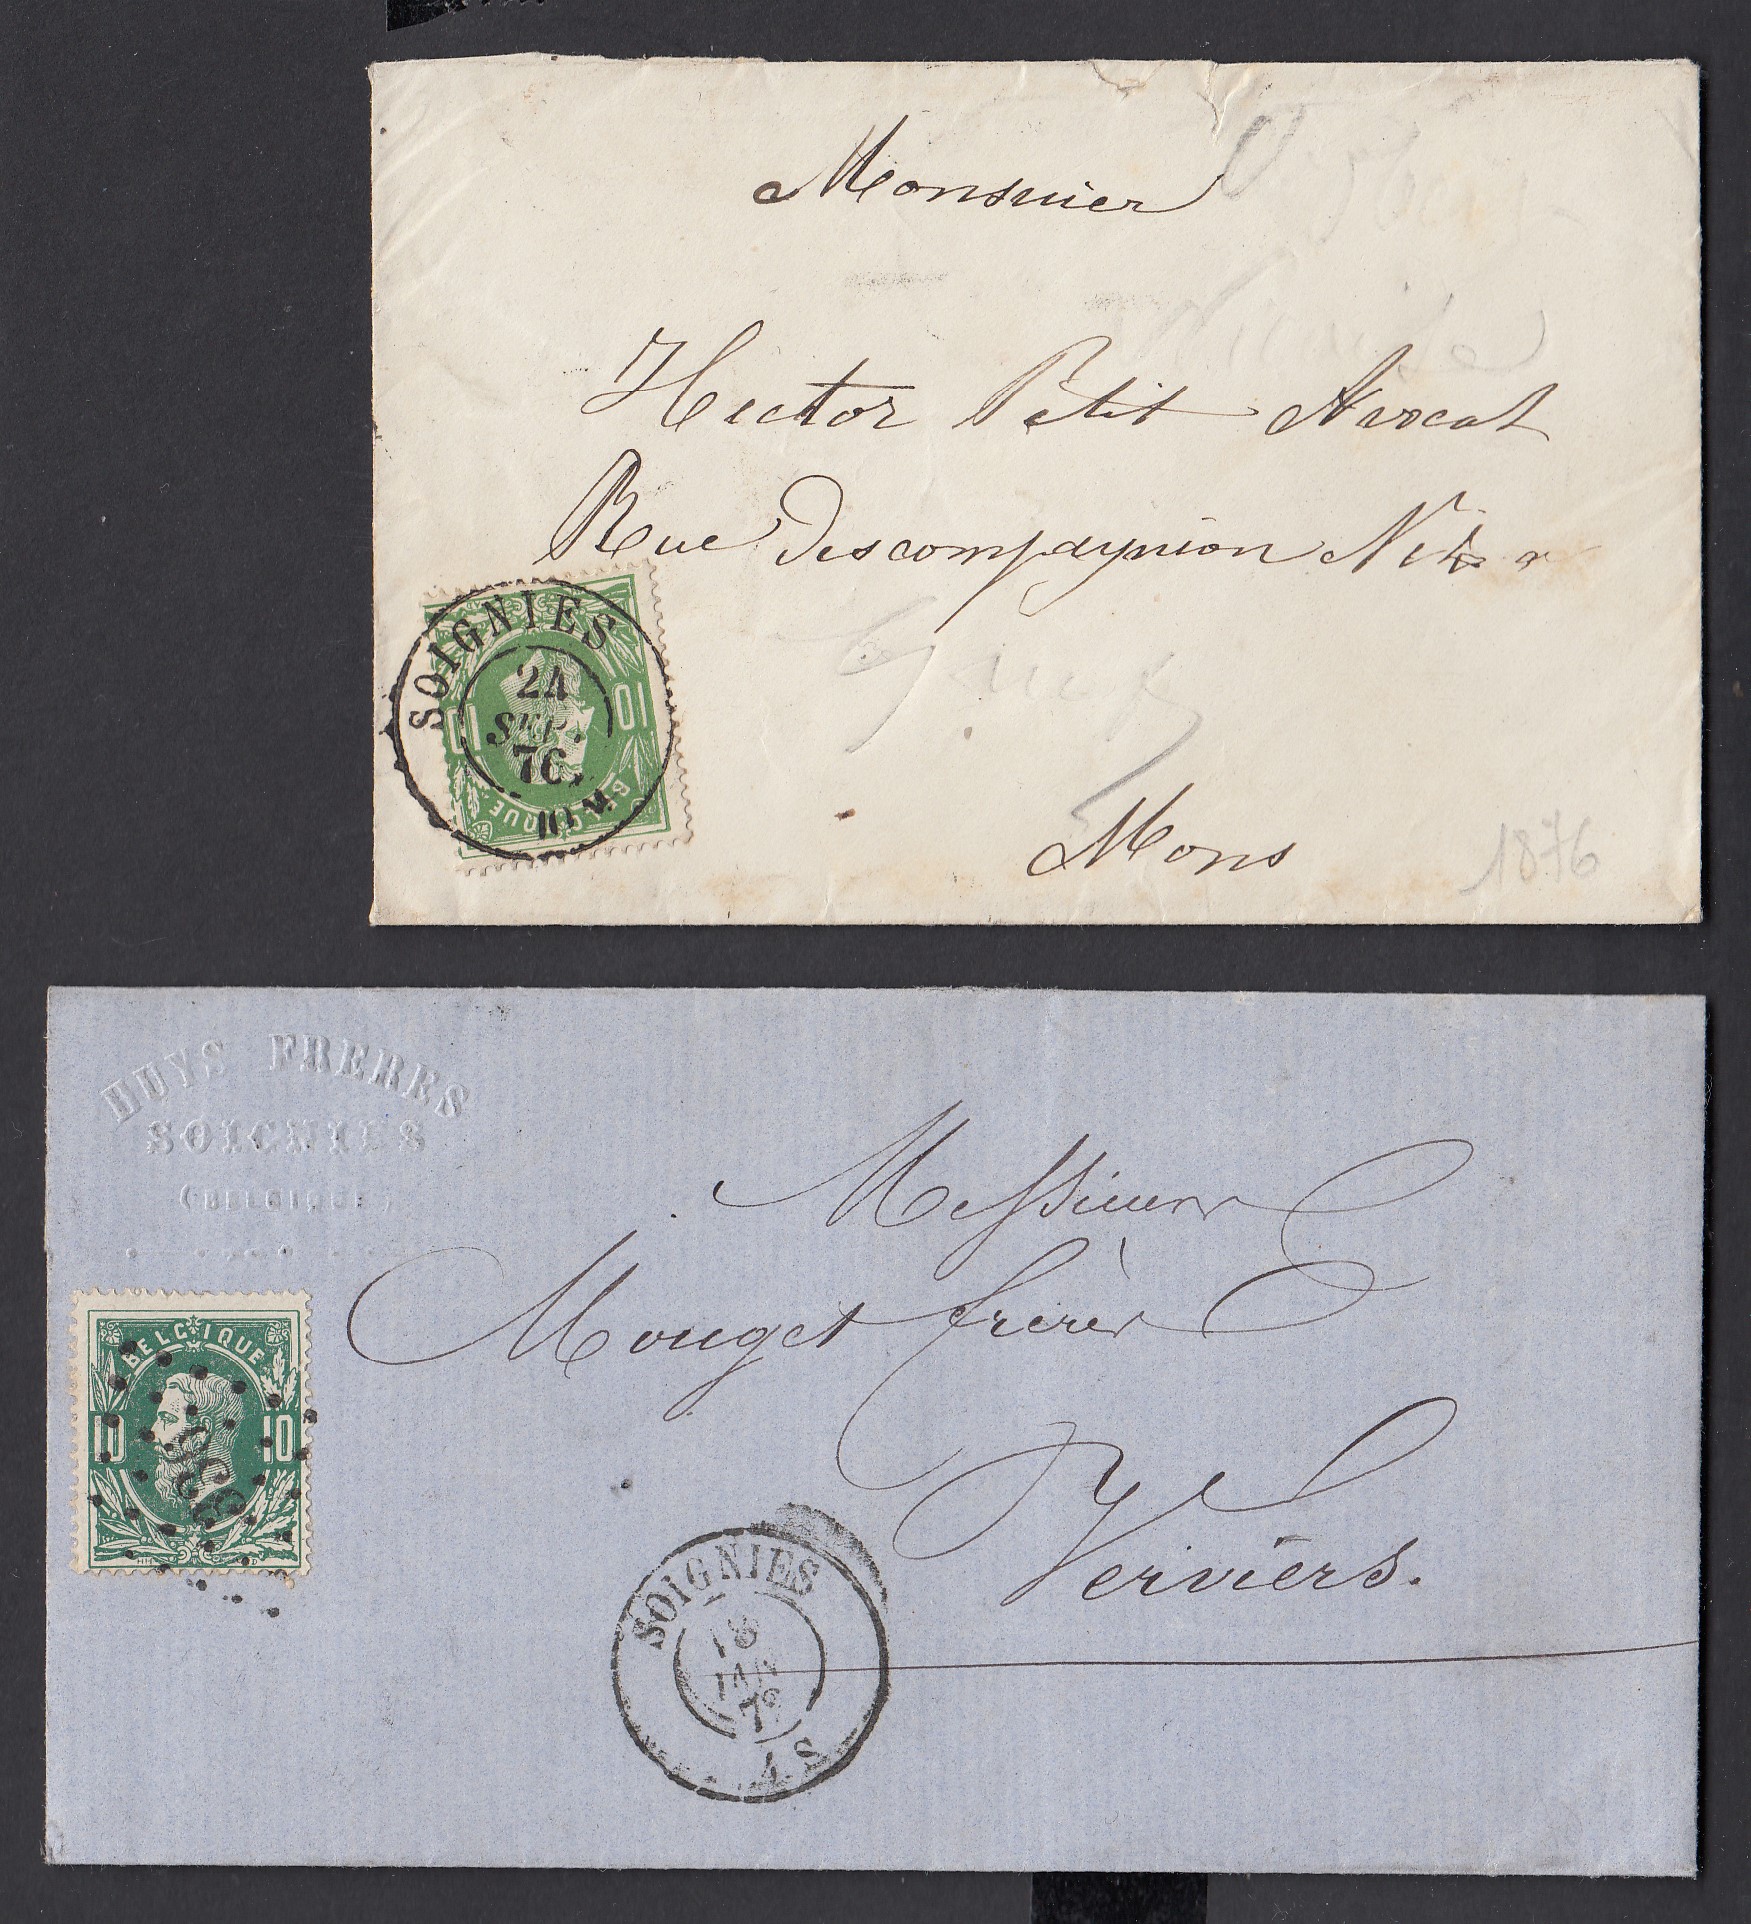 Monsuier
Hector Petit Avocat
Rue Descompagnion
SOIGNIES
24
SEPT.
76
10 M
BELGIQUE
10 10
Mons
1876
HUYS FRERES
SOIGNIES
(BELGIQUE)
Messieurs
Mouget frères
Verviers.
BELGIQUE
10 10
336
SOIGNIES
18
7
4 S